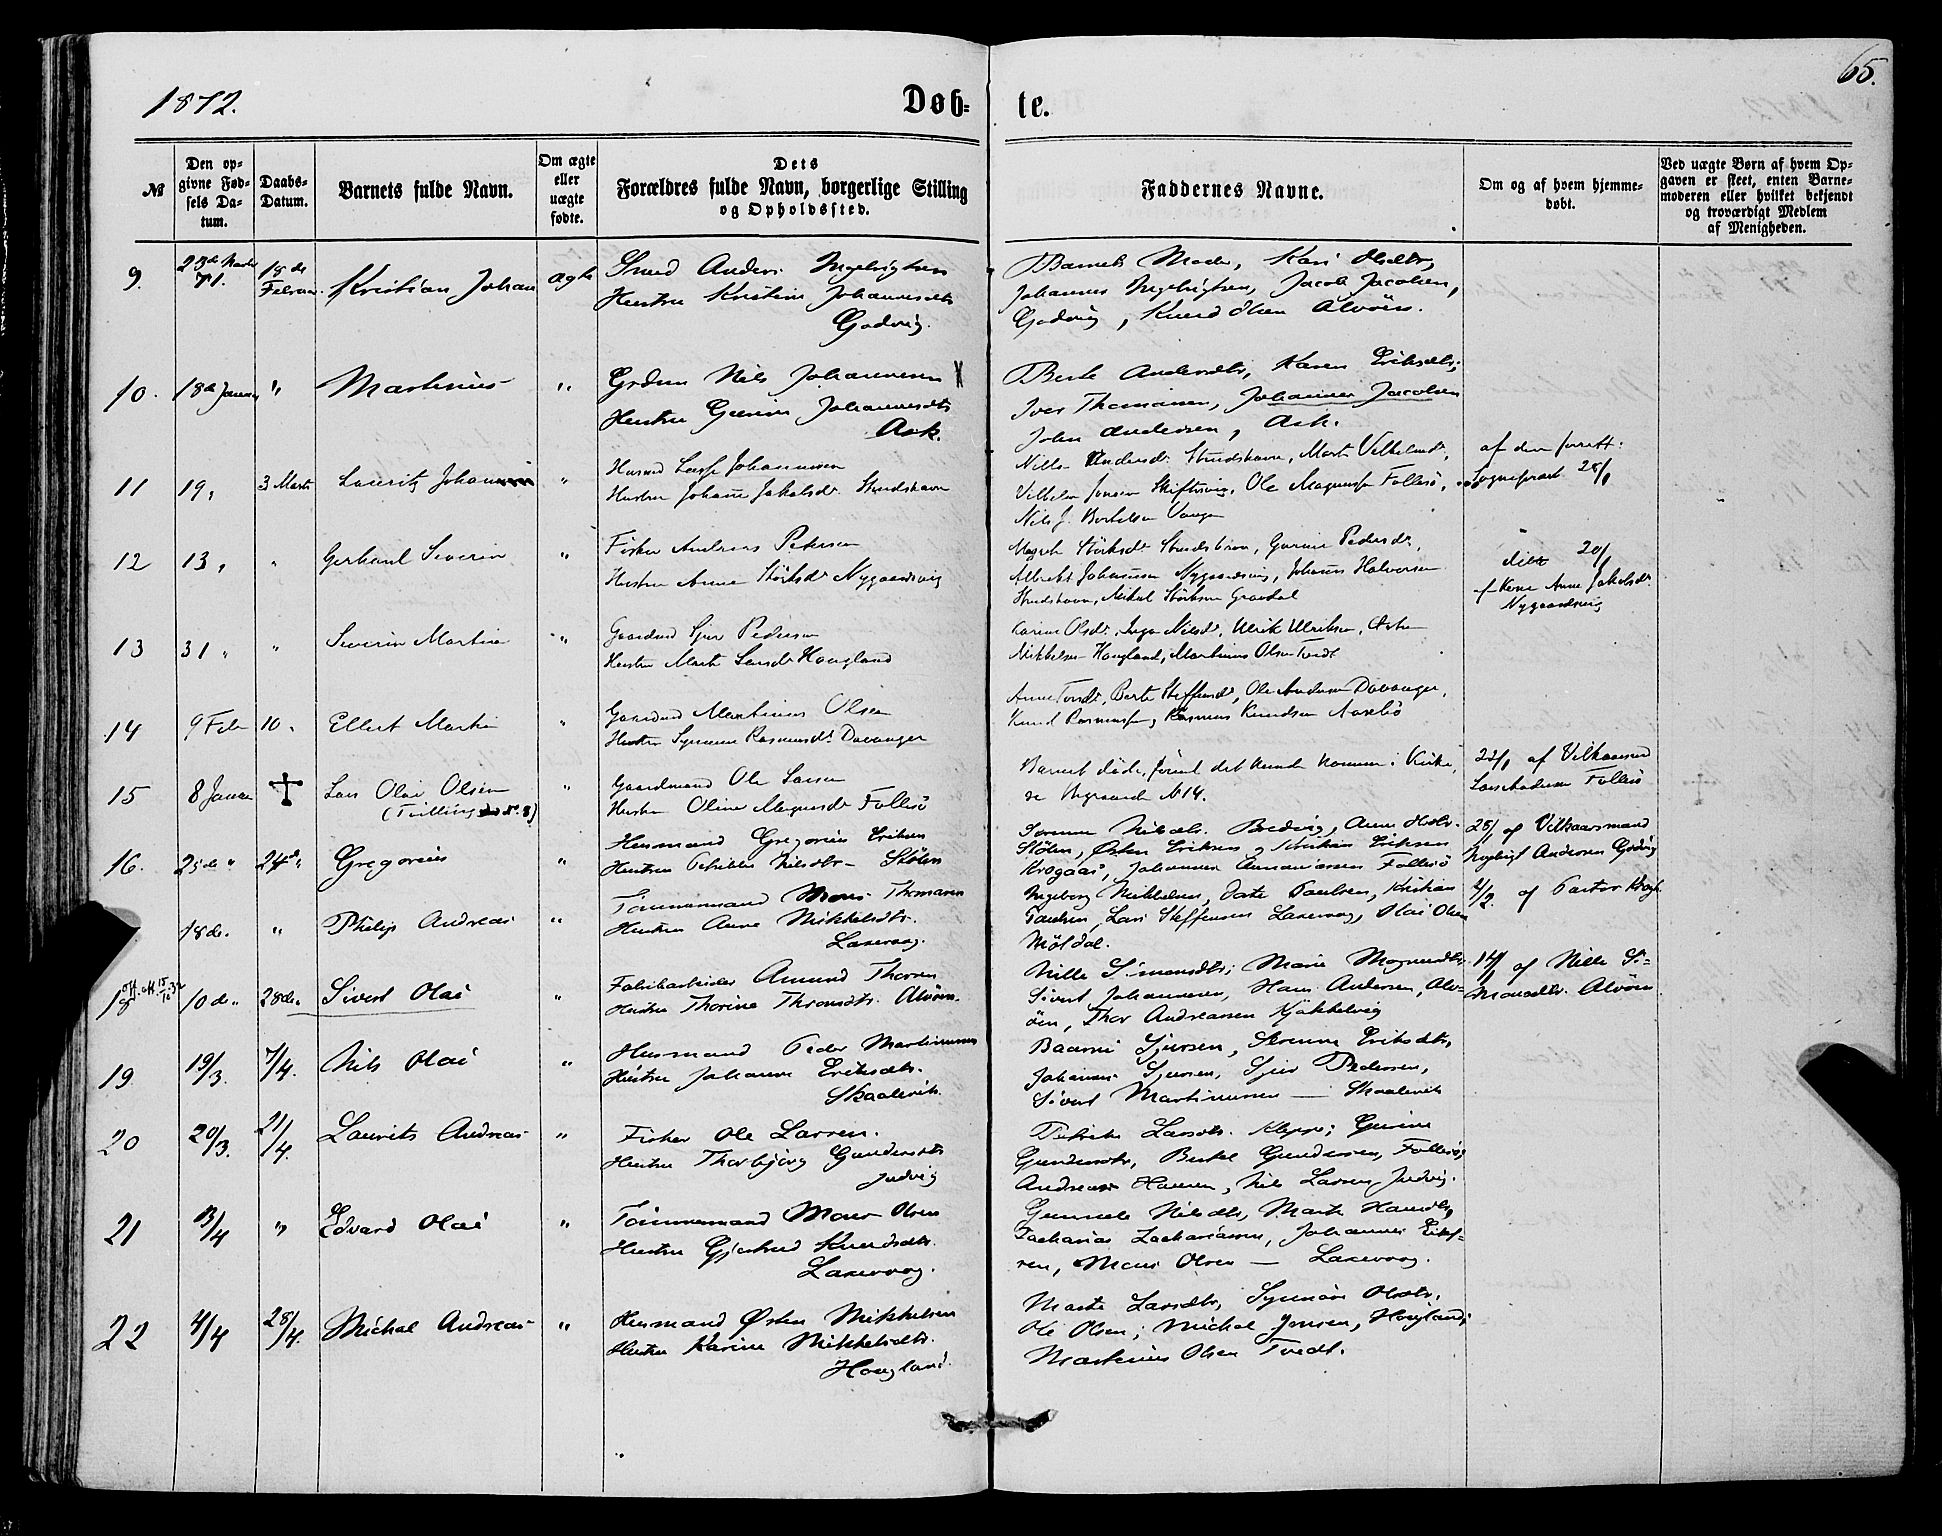 65.
1872.
Døb-
te.
№
Den op-
givne Fød-
sels Da-
tum.
Daabs-
Datum.
Barnets fulde Navn.
Om ægte
eller
uægte
fødte.
Dets
Forældres fulde Navn, borgerlige Stilling
og Opholdssted.
Faddernes Navne.
Om og af hvem hjemme-
døbt.
Ved uægte Børn af hvem Op-
gaven er skeet, enten Barne-
moderen eller hvilket bekjendt
og troværdigt Medlem
af Menigheden.
9.
71.
18de
Februar.
Kristian Johan
ægte
Smed Anders Ingebrigtsen
Hustru Kristine Johannesdtr
Godvig.
Barnets Moder, Kari Olsdtr,
Johannes Ingebrigtsen, Jacob Jacobsen,
Godvig, Knud Olsen Alvöen.
10.
18de Januar
"
Martinus
"
Grdmn Nils Johannesen X
Hustru Gurine Johannesdtr
Ask.
Berte Andersdtr, Karen Eriksdtr,
Iver Thomassen, Johannes Jacobsen
John Andersen, Ask.
11
19,
3 Marts
Laurits
"
Husmd Lasse Johannesen
Hustru Johanne Jakobsdr. Strudshavn
Nille Andersdr. Strudshavn, Marta Vilhelmdr,
Vilhelm Jonsen Skiftesvig, Ole Magnussen Follesö,
Nils J. Bertelsen Vange
af den forrett.
Sognepræst 28/1
12
13,
"
Gerhard Severin
"
Fisker Andreas Petersen
Hustru Anne Störksdr Nygaardsvig
Störksdr Strudshavn, Gurine Pedersdr,
Albrekt Johannesen Nygaardsvig, Johannes Halvorsen
Strudshavn, Mikal Störksen Gravdal
20/1
af Kone Anne Jakobsdr
Nygaardsvig
13
31 "
"
Severin Martin
"
Gaardmd Sjur Pedersen
Hustru Marta Larsdr Hougland
Karine Olsdr, Inga Nilsdr, Ulrik Ulriksen,
Mikkelsen Hougland, Martinus Olsen Tvedt
14
9 Febr
10 "
Ellert Martin
"
Gaardmd Martinus Olsen
Hustru Synneve Rasmusdr Davanger
Anne Berte Steffensdr, Ole Andersen Davanger,
Knud Rasmussen, Rasmus Knudsen
15
8 Januar
Lars Olai Olsen
(Tvilling No 8)
"
Gaardmand Ole Larsen
Hustru Oline Magnusdr Follesö
Barnet döde, förend det kunde komme i Kirke,
se Begravede N 14.
22/1 af Vilkaarsmd
Lars Andersen Follesö
16.
25de "
24de "
Gregorius
"
Husmand Gregorius Eriksen
Hustru Pernille Nilsdtr – Stölen
Nilsdtr. Breding, Anne
Stölen, Østen Eriksen og Kristian Eriksen
Krogaas, Johannes Follesö
28/1 af Vilkaarsmand
Ingebrigt Andersen Godvig
18de.
"
Philip Andreas
"
Tömmermand Mons Thomassen
Hustru Anne Mikkelsdtr.
Laxevaag.
Ingeborg Mikkelsen, Dorte Paulsen, Kristian
Paulsen, Lars Steffensen Laxevaag, Olai Olsen
Möldal.
4/2. af Pastor Krogh
18
10de "
28de "
Sivert Olai
"
Fabrikarbeider Amund Thorsen
Hustru Thorine Thronsdtr. Alvöen.
Nille Simonsdtr, Marie Magnusdtr
Sivert Johannesen, Hans Andersen, Alv-
öen, Thor Andreassen Kjökkelvig
14/1 af Nille Si-
monsdtr. Alvöen
19
19/3.
7/4.
Nils Olai
"
Husmand Peder Martinussen
Hustru Johanne Eriksdtr.
Skaalevik.
Sjursen, Eriksdtr,
Johannes Sjursen, Sjur Pedersen,
Sivert Martinussen – Skaalevik
20
20/3.
21/4.
Laurits Andreas
"
Fisker Ole Larsen.
Hustru Thorbjörg Gundersdtr
Judvig
Larsdtr. Kleppe; Gurine
Gundersdtr, Gundersen, Follesö,
Andreas Hansen, Nils Larsen Judvig.
21
13/4
"
Edvard Olai
"
Tömmermand Mons Olsen
Hustru Gjertrud Knudsdtr.
Laxevaag.
Gunnele Nilsdtr, Marta Hansdtr,
Zacharias Zachariassen, Johannes Erik-
sen, Mons Olsen – Laxevaag.
22
4/4
28/4.
Michal Andreas
"
Husmand Østen Mikkelsen
Hustru Karine Mikkelsdtr.
Hougland.
Marta Larsdtr, Synnöve Olsdtr,
Ole Olsen; Michal Jonsen, Hougland;
Martinus Olsen Tvedt.